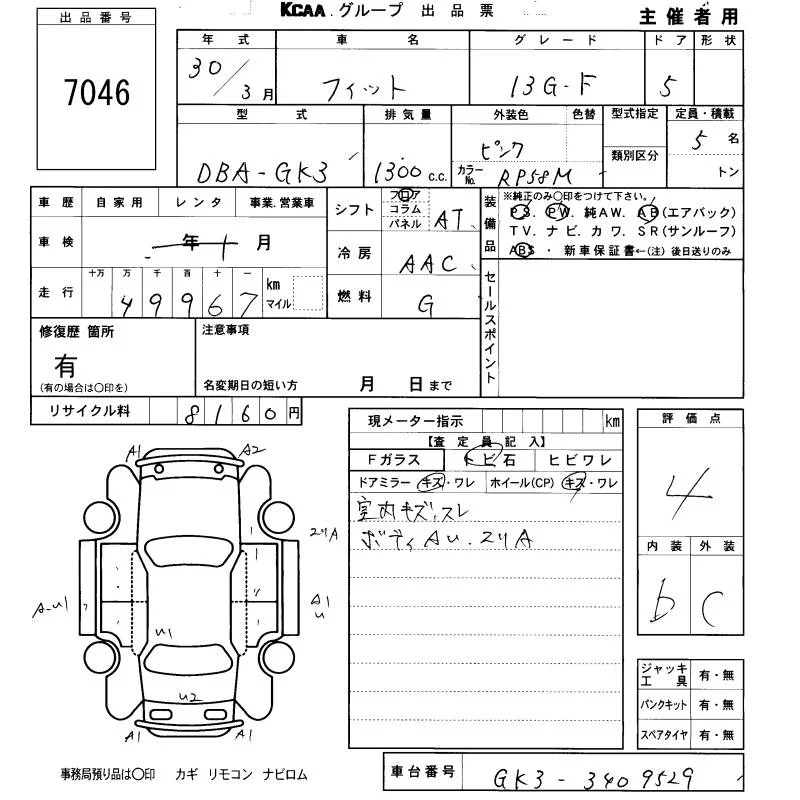 KCAA.グループ 出品票
主催者用
出品番号
7046
年式 車名 グレード ドア 形状
30/3月 フィット 13G-F 5
型式 排気量 外装色 色替 型式指定 定員・積載
DBA-GK3 1300 c.c. ピンク 5名
カラーNo. RP58M 類別区分 トン
車歴 自家用 レンタ 事業.営業車
車検 年 月
走行 十万 万 千 百 十 一
49967 km マイル
シフト フロア コラム パネル AT
冷房 AAC
燃料 G
装備品
※純正のみ○印をつけて下さい。
PS. PW. 純AW. AB(エアバック)
TV. ナビ. カワ. SR(サンルーフ)
ABS ・ 新車保証書←(注) 後日送りのみ
セールスポイント
修復歴 箇所
有
(有の場合は○印を)
注意事項
名変期日の短い方 月 日まで
リサイクル料 8160円
現メーター指示 km
【査定員記入】
Fガラス トビ石 ヒビワレ
ドアミラー キズ・ワレ ホイール(CP) キズ・ワレ
室内キズ、スレ
ボディAU.ヱリA
評価点
4
内装 外装
b C
A1 A2
ヱリA
A-U1
A1
U
U1
U2
A1 A1
ジャッキ工具 有・無
パンクキット 有・無
スペアタイヤ 有・無
事務局預り品は○印 カギ リモコン ナビロム
車台番号 GK3-3409529